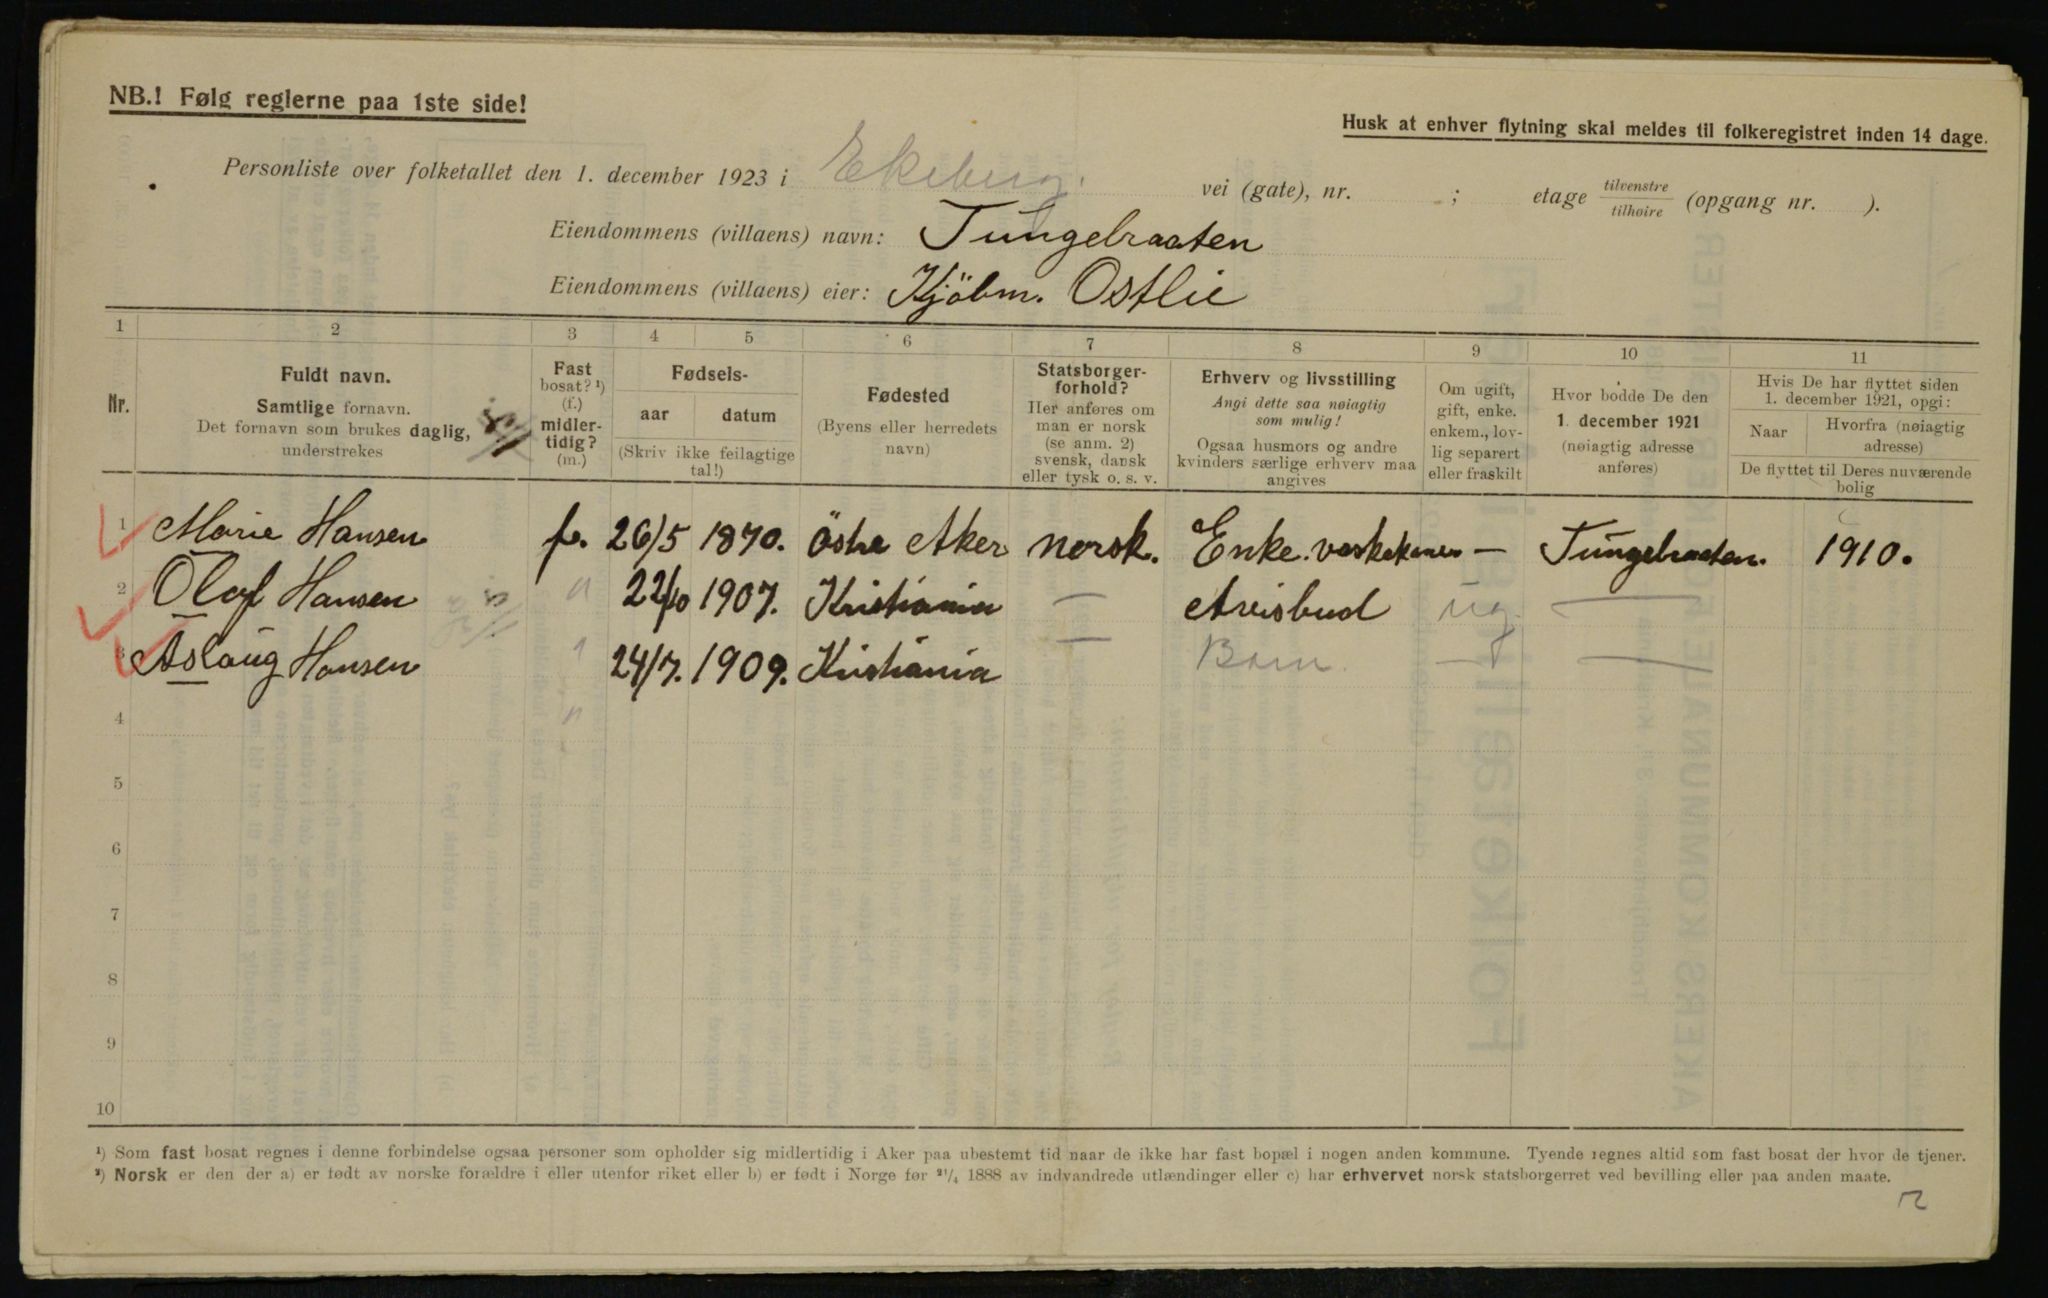 NB.! Følg reglerne paa 1ste side!
Husk at enhver flytning skal meldes til folkeregistret inden 14 dage.
Personliste over folketallet den 1. december 1923 i Ekeberg. vei (gate), nr. ; etage tilvenstre tilhøire (opgang nr. ).
Eiendommens (villaens) navn: Tungebraaten
Eiendommens (villaens) eier: Kjöbm. Ostlie
1 2 3 4 5 6 7 8 9 10 11
Nr.
Fuldt navn.
Samtlige fornavn.
Det fornavn som brukes daglig,
understrekes
Fast
bosat? ¹)
(f.)
midler-
tidig?
(m.)
Fødsels-
aar datum
(Skriv ikke feilagtige
tal!)
Fødested
(Byens eller herredets
navn)
Statsborger-
forhold?
Her anføres om
man er norsk
(se anm. 2)
svensk, dansk
eller tysk o. s. v.
Erhverv og livsstilling
Angi dette saa nøiagtig
som mulig!
Ogsaa husmors og andre
kvinders særlige erhverv maa
angives
Om ugift,
gift, enke.
enkem., lov-
lig separert
eller fraskilt
Hvor bodde De den
1. december 1921
(nøiagtig adresse
anføres)
Hvis De har flyttet siden
1. december 1921, opgi:
Naar Hvorfra (nøiagtig
adresse)
De flyttet til Deres nuværende
bolig
1 Marie Hansen f. 26/5 1870. Östre Aker norsk. Enke. vaskekone — Tungebraaten. 1910.
2 Olaf Hansen " 22/10 1907. Kristiania — Avisbud ug. —
3 Aslaug Hansen " 24/7. 1909. Kristiania — Barn — —
4 "
5
6
7
8
9
10
¹) Som fast bosat regnes i denne forbindelse ogsaa personer som opholder sig midlertidig i Aker paa ubestemt tid naar de ikke har fast bopæl i nogen anden kommune. Tyende regnes altid som fast bosat der hvor de tjener.
²) Norsk er den der a) er født av norske forældre i eller utenfor riket eller b) er født i Norge før ²¹/₄ 1888 av indvandrede utlændinger eller c) har erhvervet norsk statsborgerret ved bevilling eller paa anden maate.